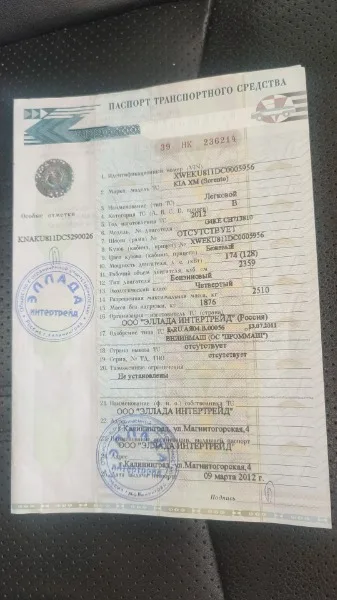 ПАСПОРТ ТРАНСПОРТНОГО СРЕДСТВА
39 НК 236214
1. Идентификационный номер (VIN) XWEKU811DC0003956
2. Марка, модель ТС KIA XM (Sorento)
3. Наименование (тип ТС) Легковой
4. Категория ТС (А, В, С, D, прицеп) B
5. Год изготовления ТС 2012
6. Модель, № двигателя
7. Шасси (рама) № ОТСУТСТВУЕТ
8. Кузов (кабина, прицеп) № XWEKU811DC0003956
9. Цвет кузова (кабины, прицепа) Бежевый
10. Мощность двигателя, л. с. (кВт) 174 (128)
11. Рабочий объем двигателя, куб. см 2359
12. Тип двигателя Бензиновый
13. Экологический класс Четвертый
14. Разрешенная максимальная масса, кг 2510
15. Масса без нагрузки, кг 1876
16. Организация-изготовитель ТС (страна)
ООО "ЭЛЛАДА ИНТЕРТРЕЙД" (Россия)
17. Одобрение типа ТС №
18. Страна вывоза ТС отсутствует
19. Серия, № ТД, ТПО отсутствует
20. Таможенные ограничения
Не установлены
21. Наименование (ф. и. о.) собственника ТС
ООО "ЭЛЛАДА ИНТЕРТРЕЙД"
22. Адрес
г.Калининград, ул.Магнитогорская,4
23. Наименование организации, выдавшей паспорт
ООО "ЭЛЛАДА ИНТЕРТРЕЙД"
24. Адрес
г.Калининград, ул.Магнитогорская,4
25. Дата выдачи паспорта 09 марта 2012 г.
Подпись
Особые отметки
KNAKU811DC5290026
ЭЛЛАДА
интертрейд
ЭЛЛАДА
интертрейд